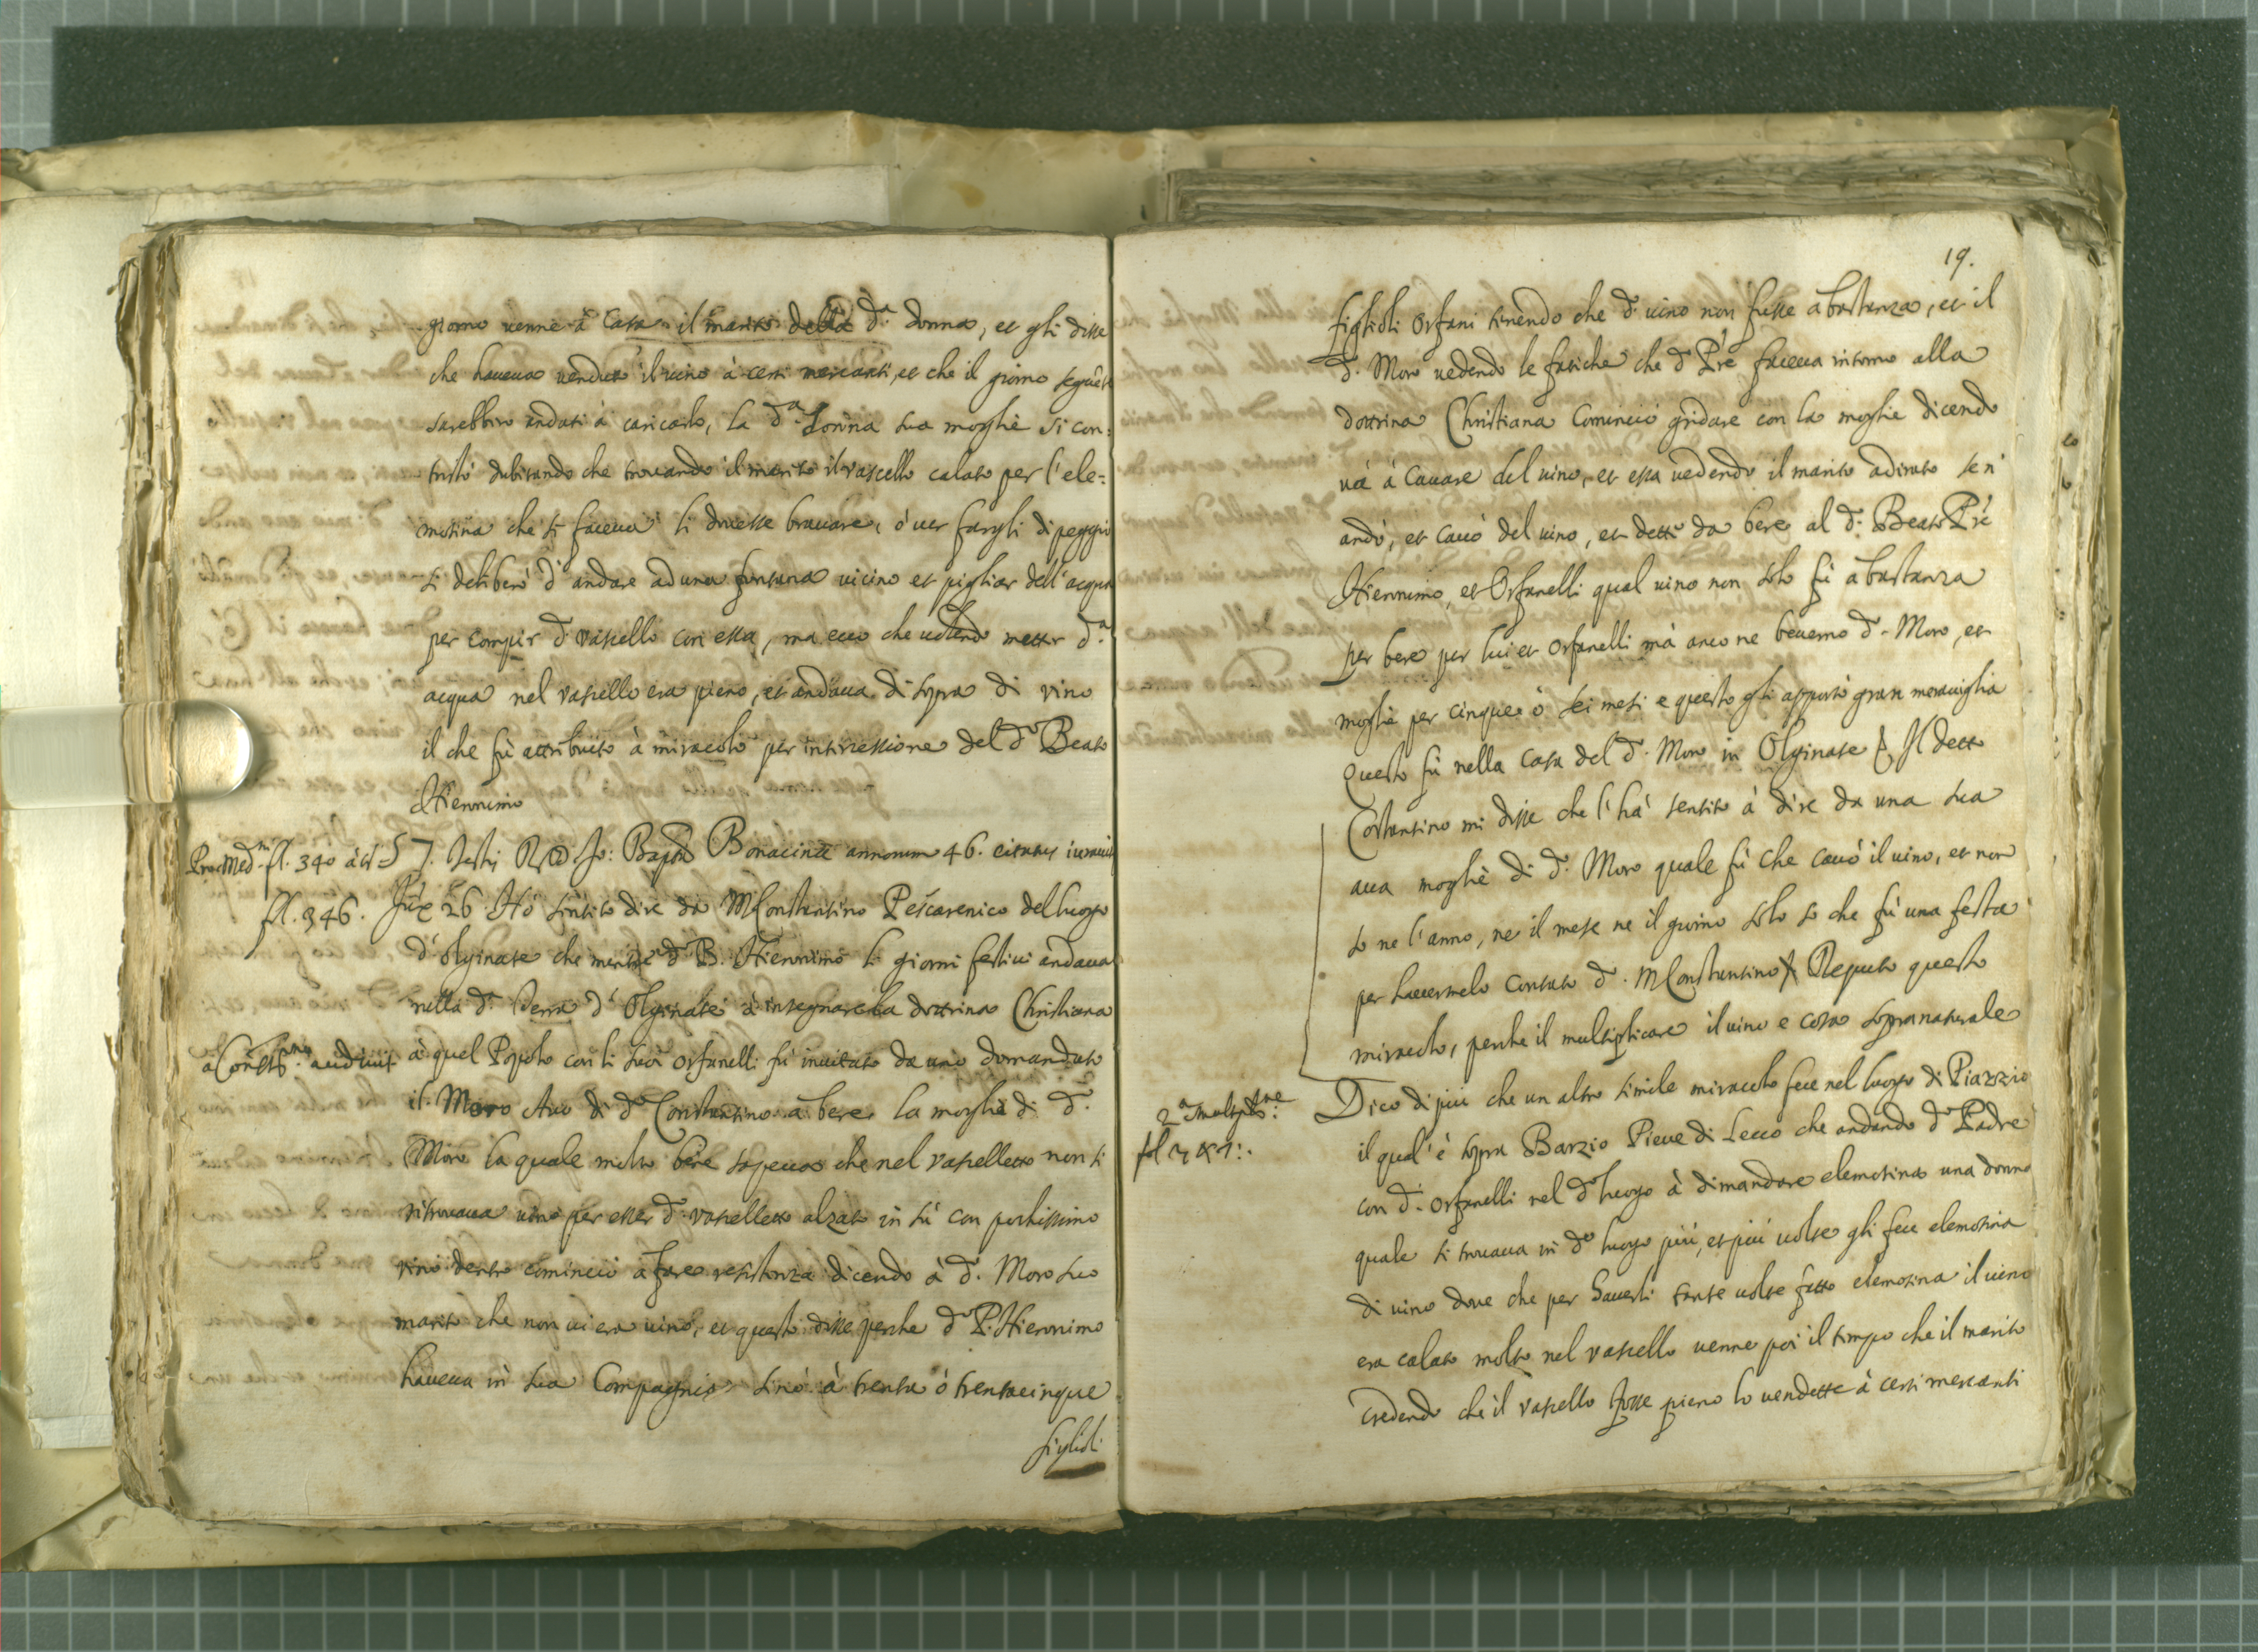 giorno uenne à Casa il marito della d.ª donna, et gli disse
che haueua uenduto il uino à certi mercanti, et che il giorno seguēte
sarebbiro andati à caricarlo, la d.ª Donna sua moglie si con=
tristò dubitando che trouando il marito il vascello calato per l'ele=
mosina che si faceua li douesse brauare, ò uer fargli di peggio
si deliberò d'andare ad una fontana uicino et pigliar dell'acqua
per compir d.º vassello con essa, ma ecco che uolendo metter d.ª
acqua nel vassello era pieno, et andaua di sopra di vino
il che fù attribuito à miracolo per intercessione del d.º Beato
Hieronimo
Proc. Med.ni fl. 340 à t.º
fl. 346.
57. Testis R. D. Jo: Bapta Bonacina annorum 46. citatus iurauit
26. Hò sintito dire da M. Constantino Pescarenico del luogo
d'Olginate che mentre d.º B. Hieronimo li giorni festiui andaua
nella d.ª Terra d'Olginate à insegnare la dottrina Christiana
a Const.no audiuit
à quel Popolo con li suoi orfanelli fù inuitato da uno domandato
il Moro Auo di d.º Constantino à bere. la moglie di d.º
Moro la quale molto bene sapeua che nel vasselletto non si
ritrouaua uino per esser d.º vasselletto alzato in sù con pochissimo
vino dentro cominciò a fare resistenza dicendo à d.º Moro suo
marito che non ui era uino, et questo disse perche d.º P. Hieronimo
haueua in sua Compagnia sino à trenta ò trentacinque
figlioli
19.
figlioli Orfani tenendo che d.º uino non fusse abastanza, et il
d.º Moro uedendo le fatiche che d.º Prē faceua intorno alla
dottrina Christiana Cominciò gridare con la moglie dicendo
uà à Cauare del uino, et essa uedendo il marito adirato se n'
andò, et cauò del uino, et dette da bere al d.º Beato Prē
Hieronimo, et Orfanelli qual uino non solo fù abastanza
per bere per lui et orfanelli mà anco ne beuerno d.º Moro, et
moglie per cinque ò sei mesi e questo gli apportò gran merauiglia
Questo fù nella Casa del d.º Moro in Olginate Il detto
Costantino mi disse che l'hà sentito à dire da una sua
aua moglie di d.º Moro quale fù che cauò il uino, et non
so ne l'anno, ne il mese ne il giorno solo so che fù una festa
per hauermelo Contato d.º M. Constantino Reputo questo
miracolo, perche il multiplicare il uino e cosa sopranaturale
2.ª multipl.ne
fol
Dico di più che un altro simile miracolo fece nel luogo di Piazzio
il qual'è sopra Barzio Pieue di Lecco che andando d.º Padre
con d.i orfanelli nel d.º luogo à dimandare elemosina una donna
quale si trouaua in d.º luogo più, et più uolte gli fece elemosina
di uino doue che per hauerli tante uolte fatto elemosina il uino
era calato molto nel vassello uenne poi il tempo che il marito
credendo che il vassello fosse pieno lo uendette à certi mercanti